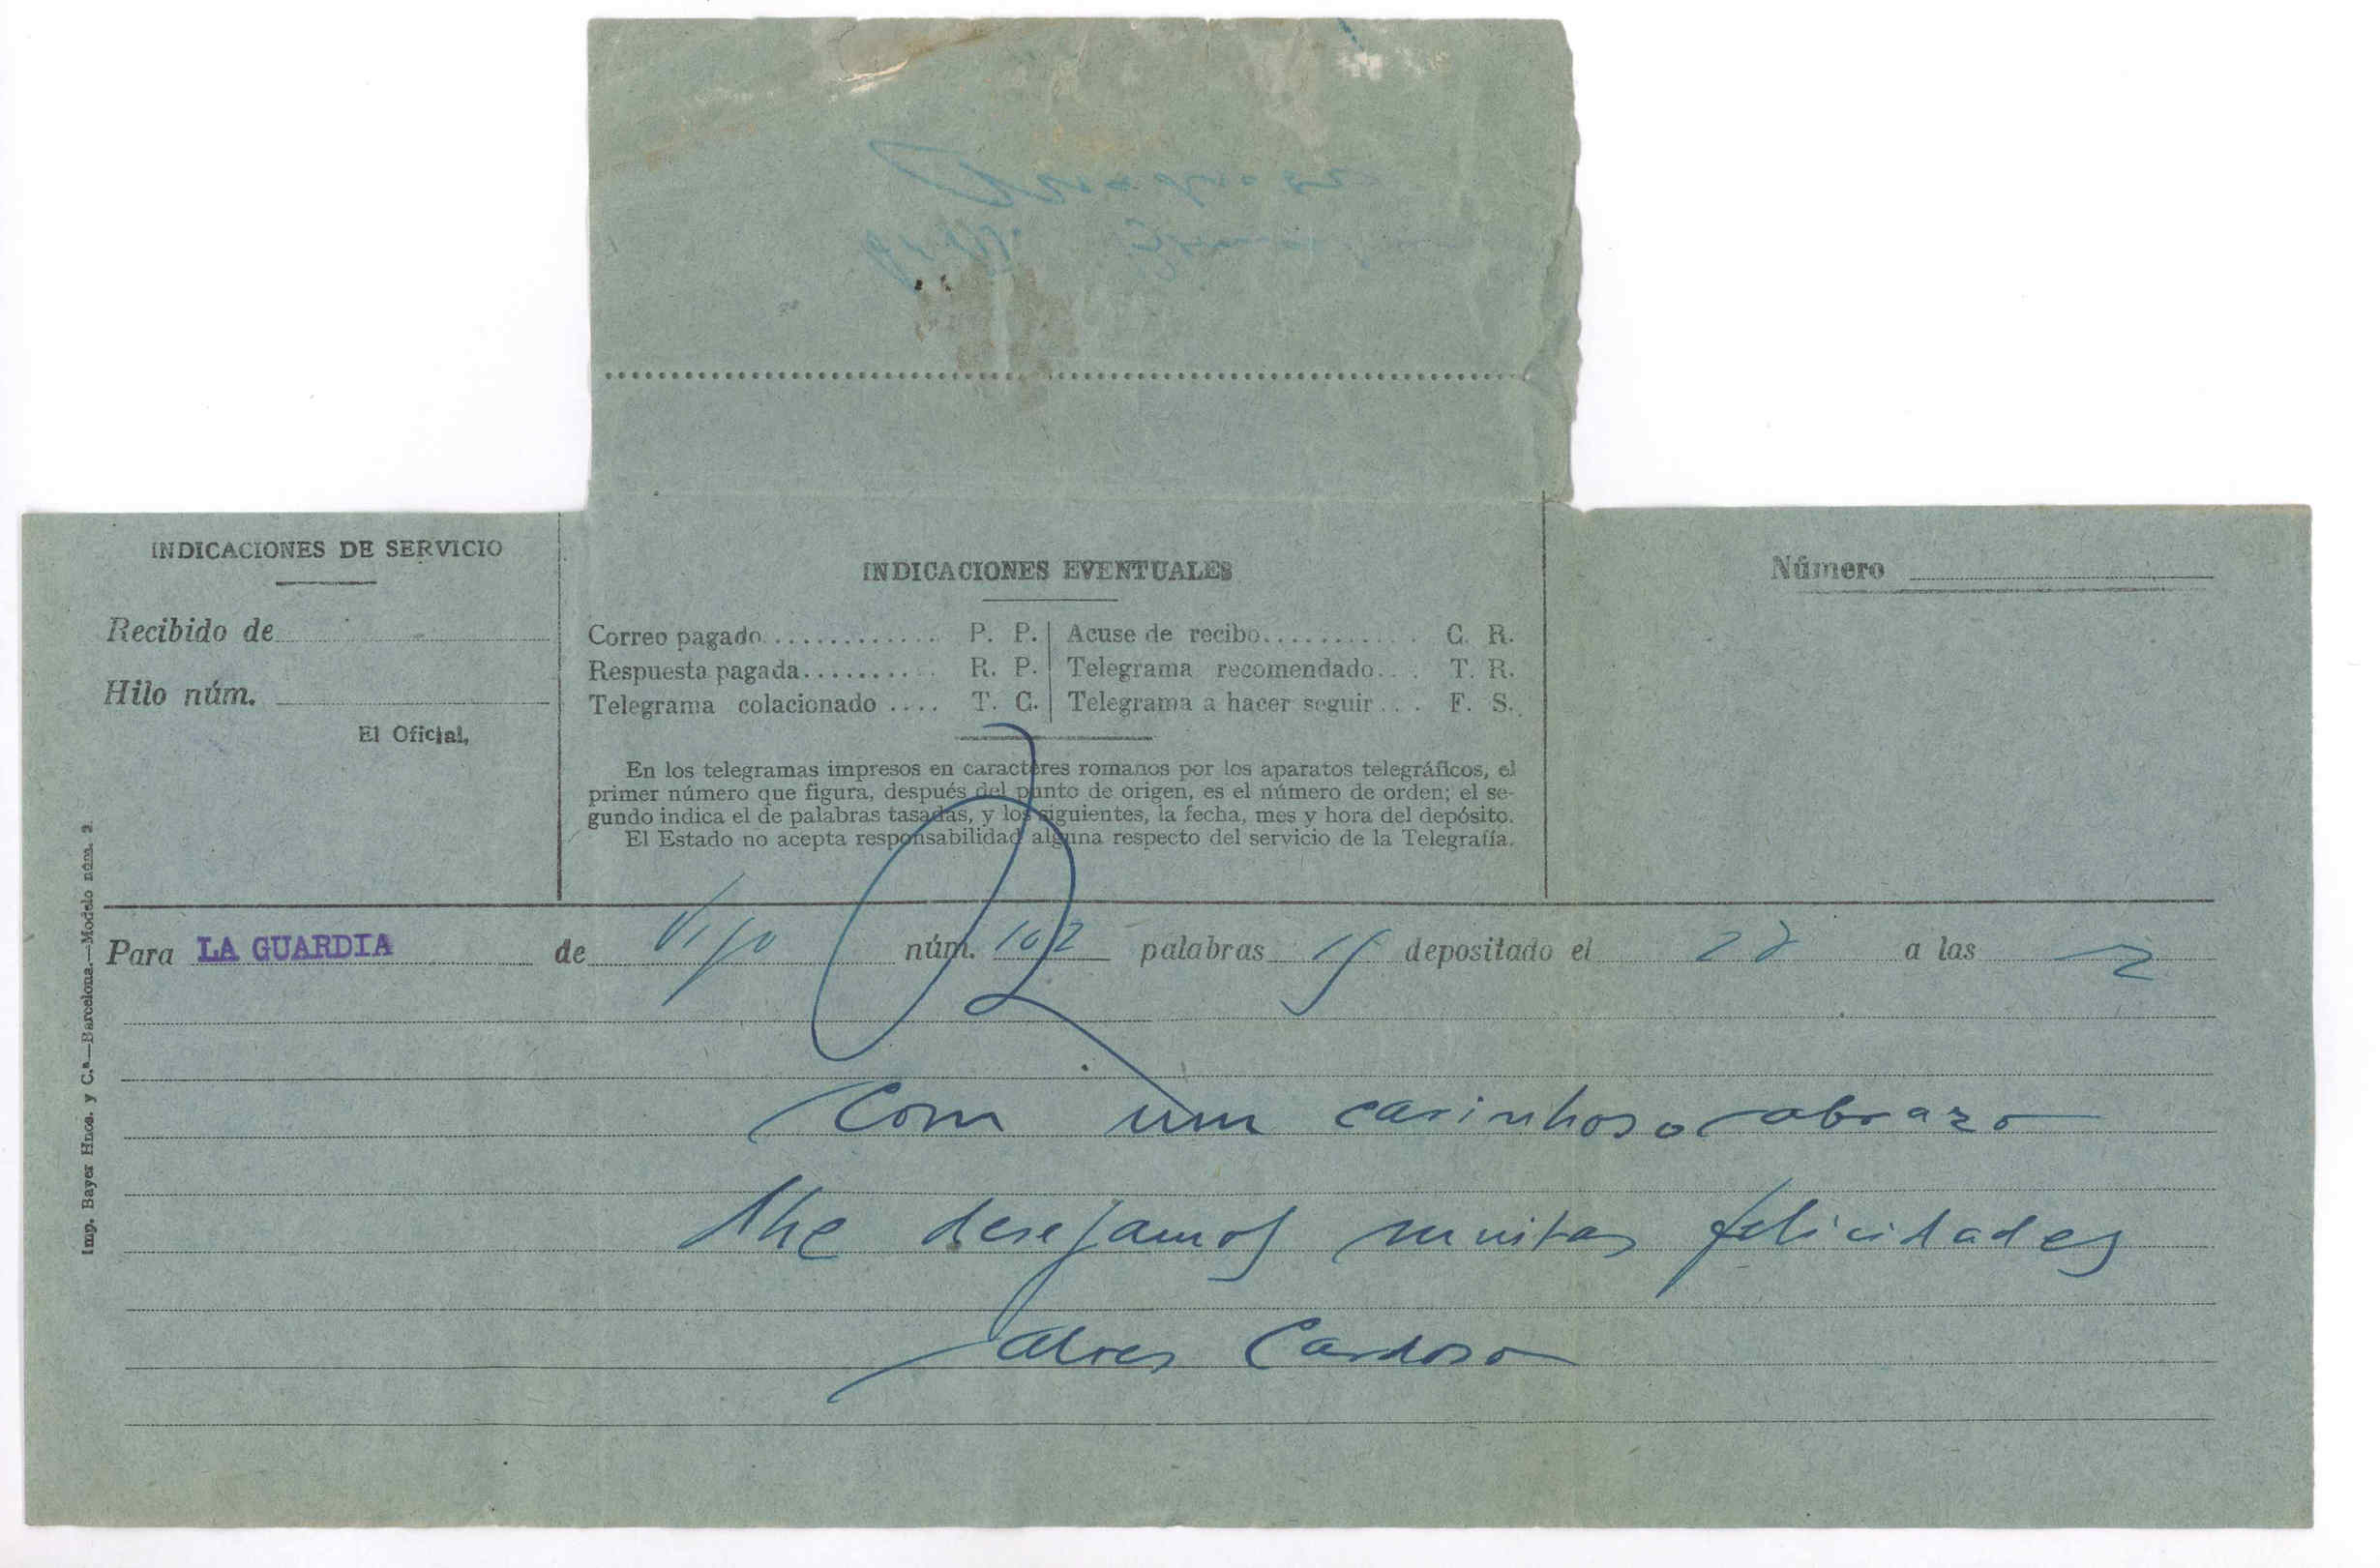 INDICACIONES DE SERVICIO
Recibido de
Hilo núm.
El Oficial,
INDICACIONES EVENTUALES
Correo pagado............ P. P. | Acuse de recibo........... C. R.
Respuesta pagada.......... R. P. | Telegrama recomendado... T. R.
Telegrama colacionado .... T. C. | Telegrama a hacer seguir... F. S.
En los telegramas impresos en caracteres romanos por los aparatos telegráficos, el
primer número que figura, después del punto de origen, es el número de orden; el se-
gundo indica el de palabras tasadas, y los siguientes, la fecha, mes y hora del depósito.
El Estado no acepta responsabilidad alguna respecto del servicio de la Telegrafía.
Número
Imp. Bayer Hnos. y C.ª—Barcelona.—Modelo núm. 2
Para LA GUARDIA de Vigo núm. 102 palabras 15 depositado el 28 a las 2
Com um carinhoso abrazo
lhe desejamos muitas felicidades
Alves Cardoso